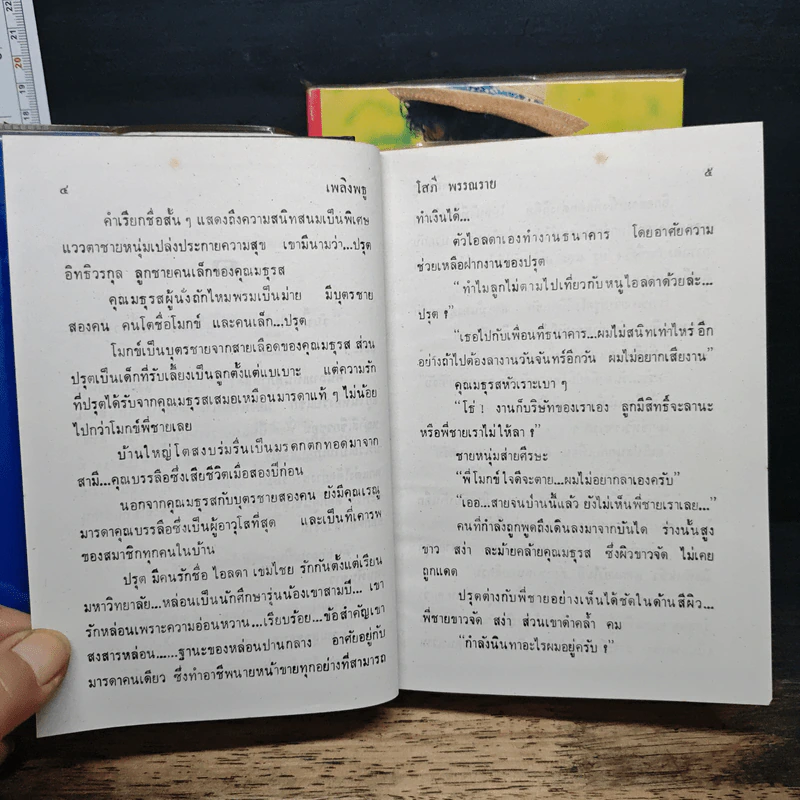 22
21
20
19
18
๔ เพลิงพธู
คำเรียกชื่อสั้น ๆ แสดงถึงความสนิทสนมเป็นพิเศษ
แววตาชายหนุ่มเปล่งประกายความสุข เขามีนามว่า...ปรุต
อิทธิวรกุล ลูกชายคนเล็กของคุณมธุรส
คุณมธุรสผู้นั่งถักไหมพรมเป็นม่าย มีบุตรชาย
สองคน คนโตชื่อโมกข์ และคนเล็ก...ปรุต
โมกข์เป็นบุตรชายจากสายเลือดของคุณมธุรส ส่วน
ปรุตเป็นเด็กที่รับเลี้ยงเป็นลูกตั้งแต่แบเบาะ แต่ความรัก
ที่ปรุตได้รับจากคุณมธุรสเสมอเหมือนมารดาแท้ ๆ ไม่น้อย
ไปกว่าโมกข์พี่ชายเลย
บ้านใหญ่โตสงบร่มรื่นเป็นมรดกตกทอดมาจาก
สามี...คุณบรรลือซึ่งเสียชีวิตเมื่อสองปีก่อน
นอกจากคุณมธุรสกับบุตรชายสองคน ยังมีคุณเรณู
มารดาคุณบรรลือซึ่งเป็นผู้อาวุโสที่สุด และเป็นที่เคารพ
ของสมาชิกทุกคนในบ้าน
ปรุต มีคนรักชื่อ ไอลดา เขมไชย รักกันตั้งแต่เรียน
มหาวิทยาลัย...หล่อนเป็นนักศึกษารุ่นน้องเขาสามปี... เขา
รักหล่อนเพราะความอ่อนหวาน...เรียบร้อย...ข้อสำคัญเขา
สงสารหล่อน......ฐานะของหล่อนปานกลาง อาศัยอยู่กับ
มารดาคนเดียว ซึ่งทำอาชีพนายหน้าขายทุกอย่างที่สามารถ
โสภี พรรณราย ๕
ทำเงินได้...
ตัวไอลดาเองทำงานธนาคาร โดยอาศัยความ
ช่วยเหลือฝากงานของปรุต
“ทำไมลูกไม่ตามไปเที่ยวกับหนูไอลดาด้วยล่ะ...
ปรุต ?”
“เธอไปกับเพื่อนที่ธนาคาร...ผมไม่สนิทเท่าไหร่ อีก
อย่างถ้าไปต้องลางานวันจันทร์อีกวัน ผมไม่อยากเสียงาน”
คุณมธุรสหัวเราะเบา ๆ
“โธ่ ! งานก็บริษัทของเราเอง ลูกมีสิทธิ์จะลานะ
หรือพี่ชายเราไม่ให้ลา ?”
ชายหนุ่มส่ายศีรษะ
“พี่โมกข์ใจดีจะตาย...ผมไม่อยากลาเองครับ”
“เออ...สายจนป่านนี้แล้ว ยังไม่เห็นพี่ชายเราเลย...”
คนที่กำลังถูกพูดถึงเดินลงมาจากบันได ร่างนั้นสูง
ขาว สง่า ละม้ายคล้ายคุณมธุรส ซึ่งผิวขาวจัด ไม่เคย
ถูกแดด
ปรุตต่างกับพี่ชายอย่างเห็นได้ชัดในด้านสีผิว...
พี่ชายขาวจัด สง่า ส่วนเขาดำคล้ำ คม
“กำลังนินทาอะไรผมอยู่ครับ ?”